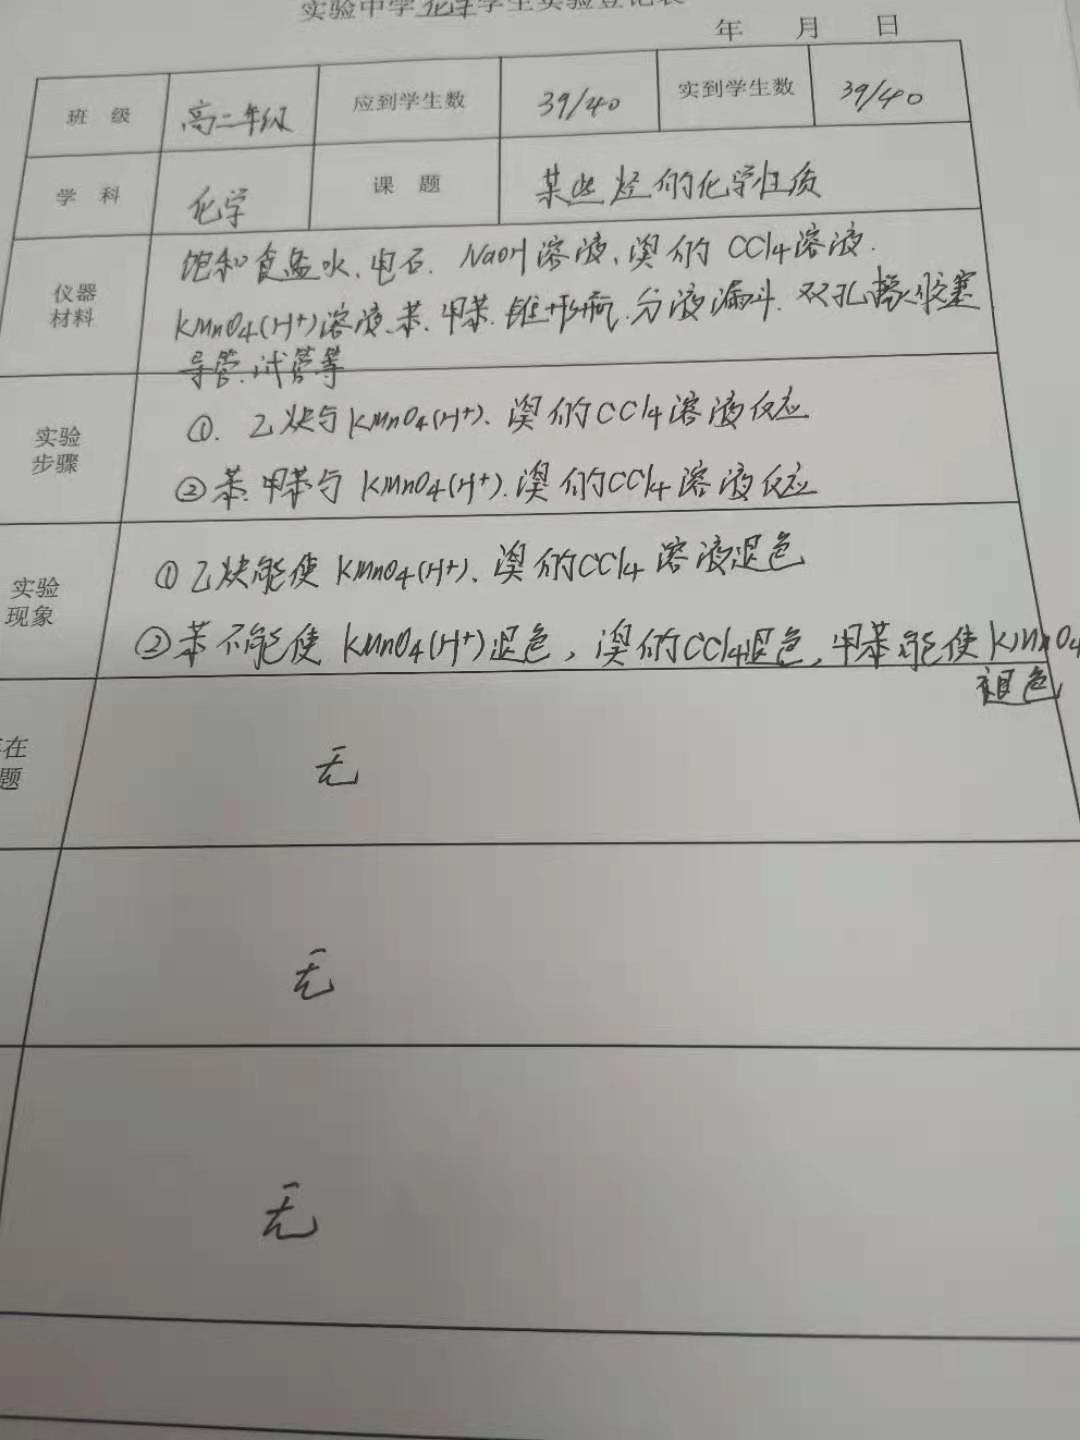 实验中学化学学生实验登记表
年 月 日
班 级 高二年级 应到学生数 39/40 实到学生数 39/40
学 科 化学 课 题 某些烃的化学性质
仪器材料
饱和食盐水、电石、NaOH溶液、溴的CCl4溶液、
KMnO4(H+)溶液、苯、甲苯、锥形瓶、分液漏斗、双孔橡胶塞
导管、试管等
实验步骤
①. 乙炔与KMnO4(H+)、溴的CCl4溶液反应
②苯、甲苯与KMnO4(H+)、溴的CCl4溶液反应
实验现象
①乙炔能使KMnO4(H+)、溴的CCl4溶液退色
②苯不能使KMnO4(H+)退色，溴的CCl4退色，甲苯能使KMnO4
褪色
在
题
无
无
无